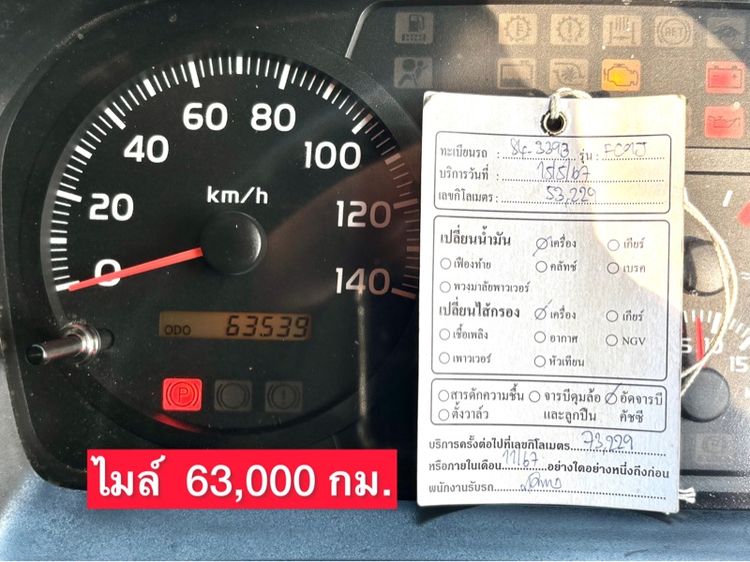 20
40
60
80
100
120
140
0
km/h
ODO 63539
P
!
ทะเบียนรถ : 84-3393 รุ่น :
บริการวันที่ : 15/5/67
เลขกิโลเมตร : 53,229
เปลี่ยนน้ำมัน เครื่อง เกียร์
เฟืองท้าย คลัทช์ เบรค
พวงมาลัยพาวเวอร์
เปลี่ยนไส้กรอง เครื่อง เกียร์
เชื้อเพลิง อากาศ NGV
เพาเวอร์ หัวเทียน
สารดักความชื้น จารบีดุมล้อ อัดจารบี
ตั้งวาล์ว และลูกปืน คัชซี
บริการครั้งต่อไปที่เลขกิโลเมตร 73,229
หรือภายในเดือน 11/67 อย่างใดอย่างหนึ่งถึงก่อน
พนักงานรับรถ
ไมล์ 63,000 กม.
15